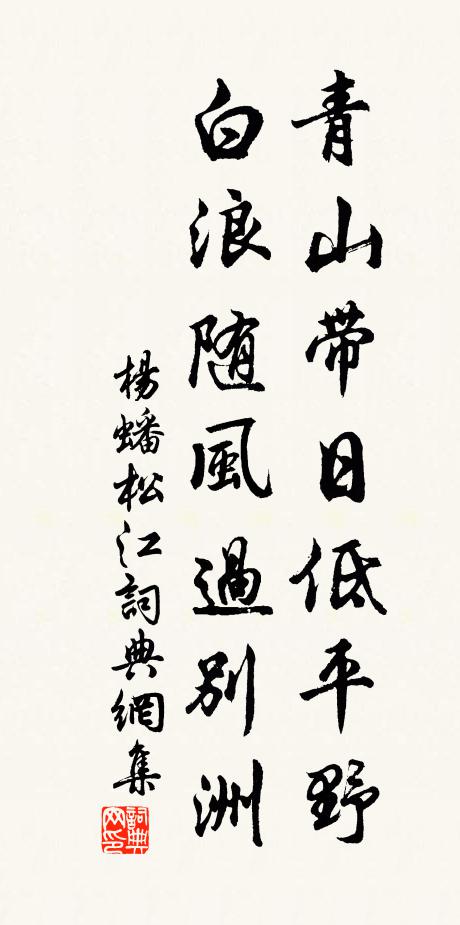 青山带日低平野
白浪随風過别洲
楊蟠松江詞典網集
詞典网印